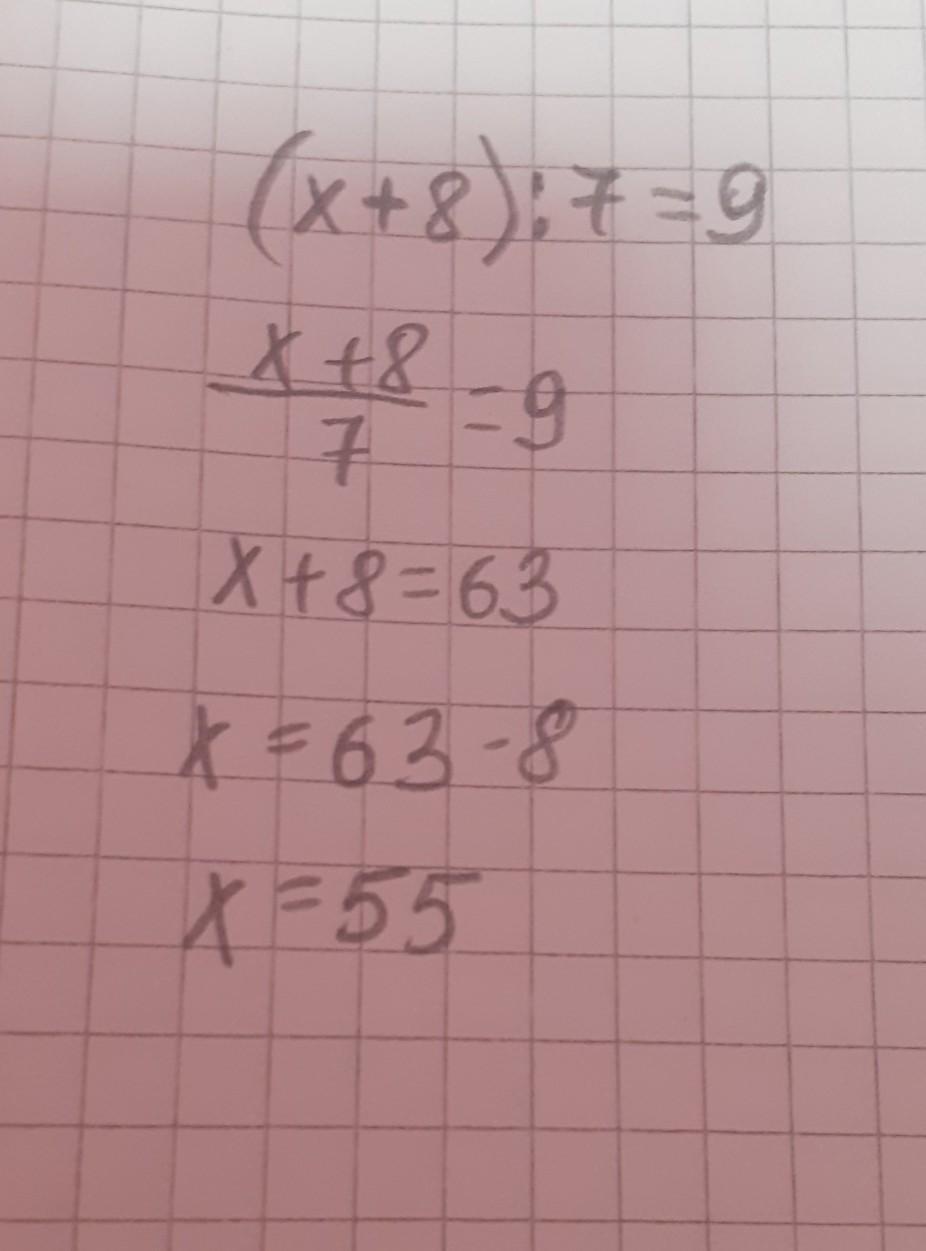 (x+8):7=9
x+8
7
=9
x+8=63
x=63-8
x=55